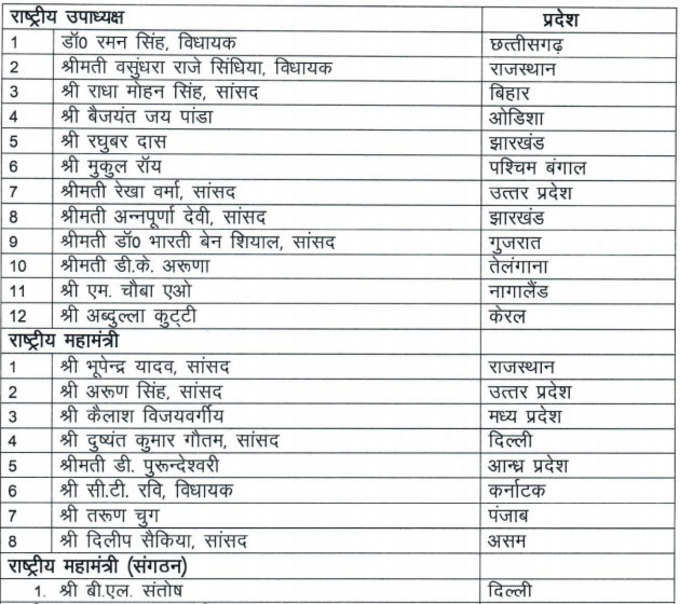 राष्ट्रीय उपाध्यक्ष प्रदेश
1 डॉ0 रमन सिंह, विधायक छत्तीसगढ़
2 श्रीमती वसुंधरा राजे सिंधिया, विधायक राजस्थान
3 श्री राधा मोहन सिंह, सांसद बिहार
4 श्री बैजयंत जय पांडा ओडिशा
5 श्री रघुबर दास झारखंड
6 श्री मुकुल रॉय पश्चिम बंगाल
7 श्रीमती रेखा वर्मा, सांसद उत्तर प्रदेश
8 श्रीमती अन्नपूर्णा देवी, सांसद झारखंड
9 श्रीमती डॉ0 भारती बेन शियाल, सांसद गुजरात
10 श्रीमती डी.के. अरूणा तेलंगाना
11 श्री एम. चौबा एओ नागालैंड
12 श्री अब्दुल्ला कुट्टी केरल
राष्ट्रीय महामंत्री
1 श्री भूपेन्द्र यादव, सांसद राजस्थान
2 श्री अरूण सिंह, सांसद उत्तर प्रदेश
3 श्री कैलाश विजयवर्गीय मध्य प्रदेश
4 श्री दुष्यंत कुमार गौतम, सांसद दिल्ली
5 श्रीमती डी. पुरून्देश्वरी आन्ध्र प्रदेश
6 श्री सी.टी. रवि, विधायक कर्नाटक
7 श्री तरूण चुग पंजाब
8 श्री दिलीप सैकिया, सांसद असम
राष्ट्रीय महामंत्री (संगठन)
1. श्री बी.एल. संतोष दिल्ली